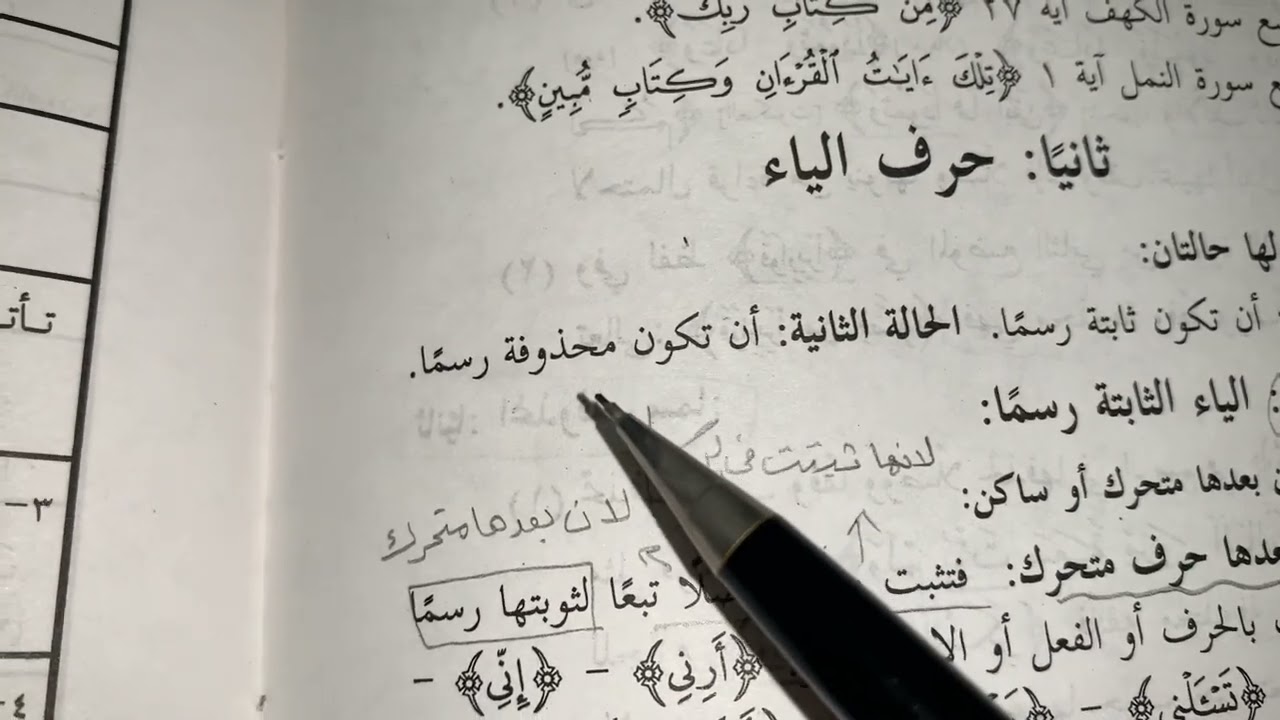 سورة الكهف آية ٢٧ ﴿مِن كِتَابِ رَبِّكَ﴾.
سورة النمل آية ١ ﴿تِلْكَ ءَايَٰتُ ٱلْقُرْءَانِ وَكِتَابٍ مُّبِينٍ﴾.
ثانيًا: حرف الياء
لها حالتان:
أن تكون ثابتة رسمًا. الحالة الثانية: أن تكون محذوفة رسمًا.
الياء الثابتة رسمًا:
لانها ثبتت في
بعدها متحرك أو ساكن:
لان بعدها متحرك
بعدها حرف متحرك: فتثبت تبعًا لثوبتها رسمًا
بالحرف أو الفعل أو
﴿أَرِنِي﴾ – ﴿إِنِّي﴾ –
تَسْـَٔلْنِي﴾ –
٣-